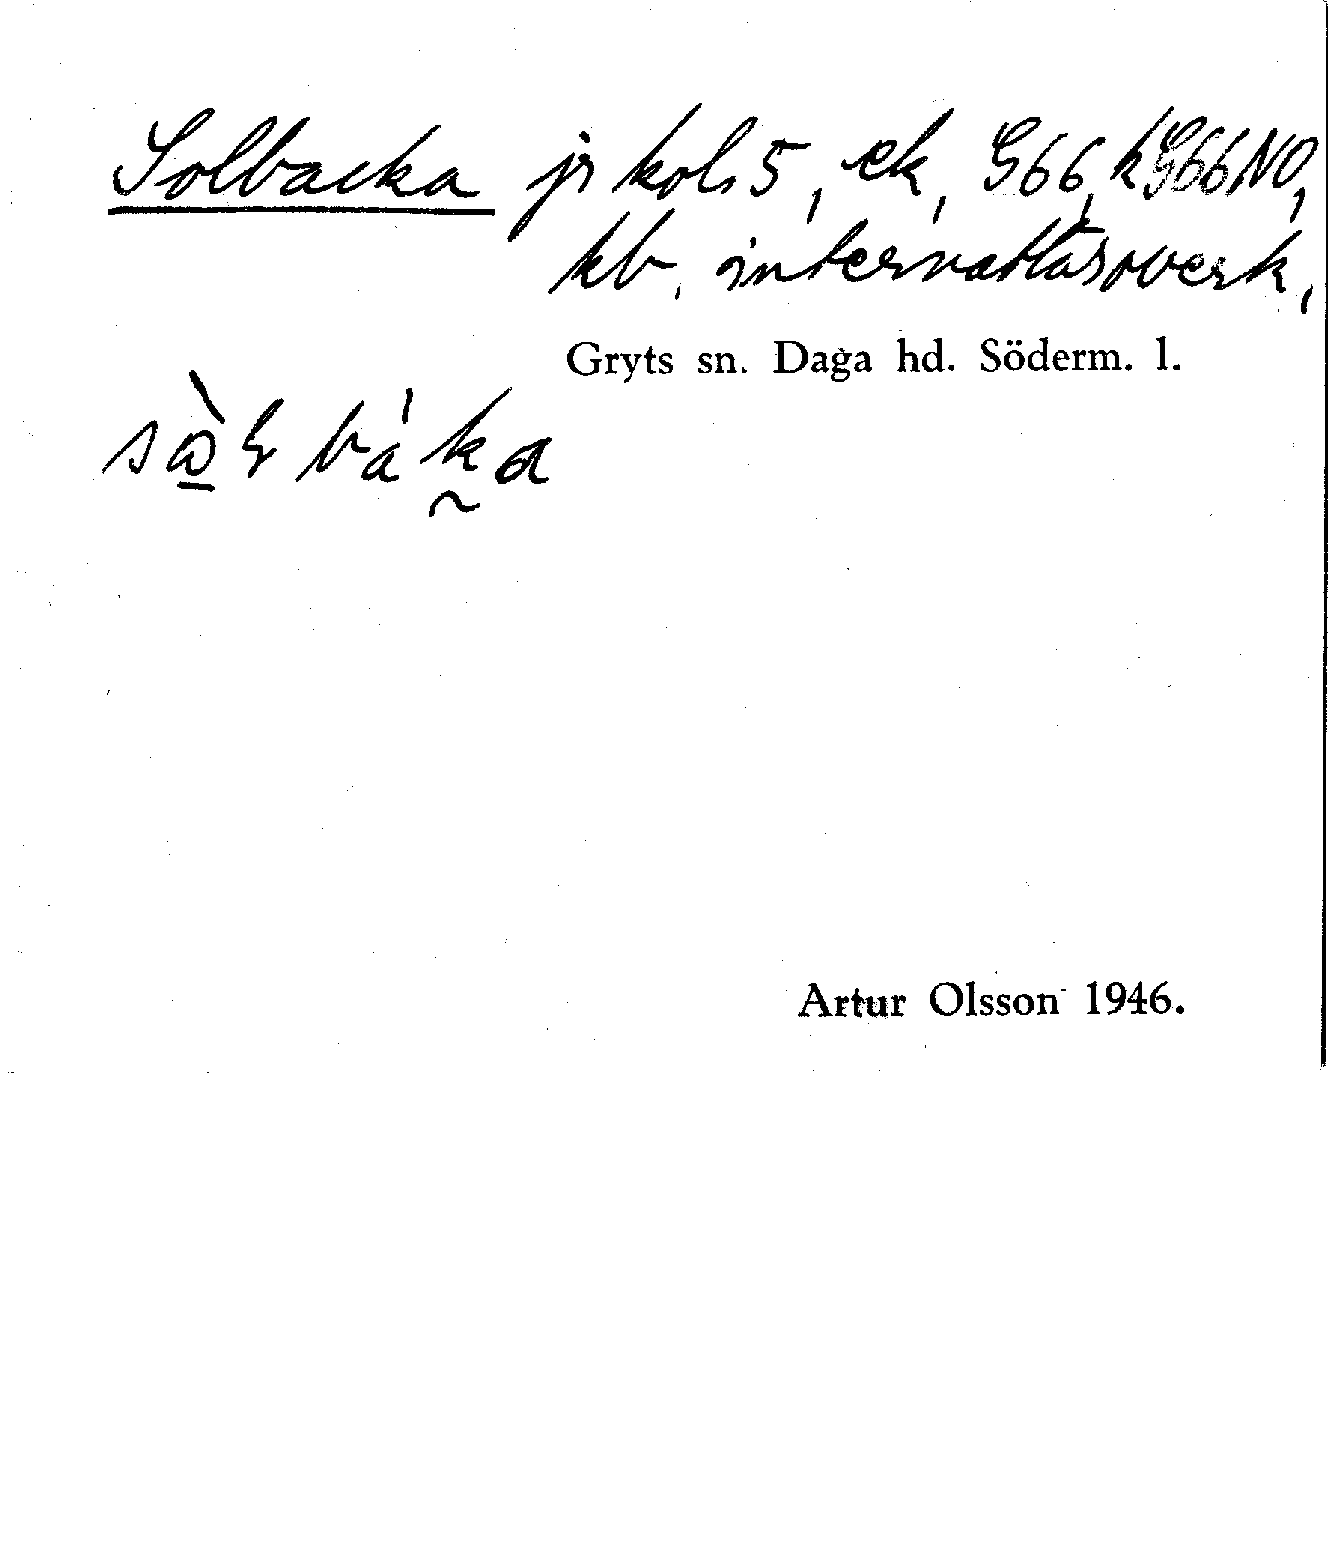 Solbacka jr kol. 5, ek, G66, kG66NO,
kb, internatläroverk,
Gryts sn. Daga hd. Söderm. l.
Artur Olsson 1946.